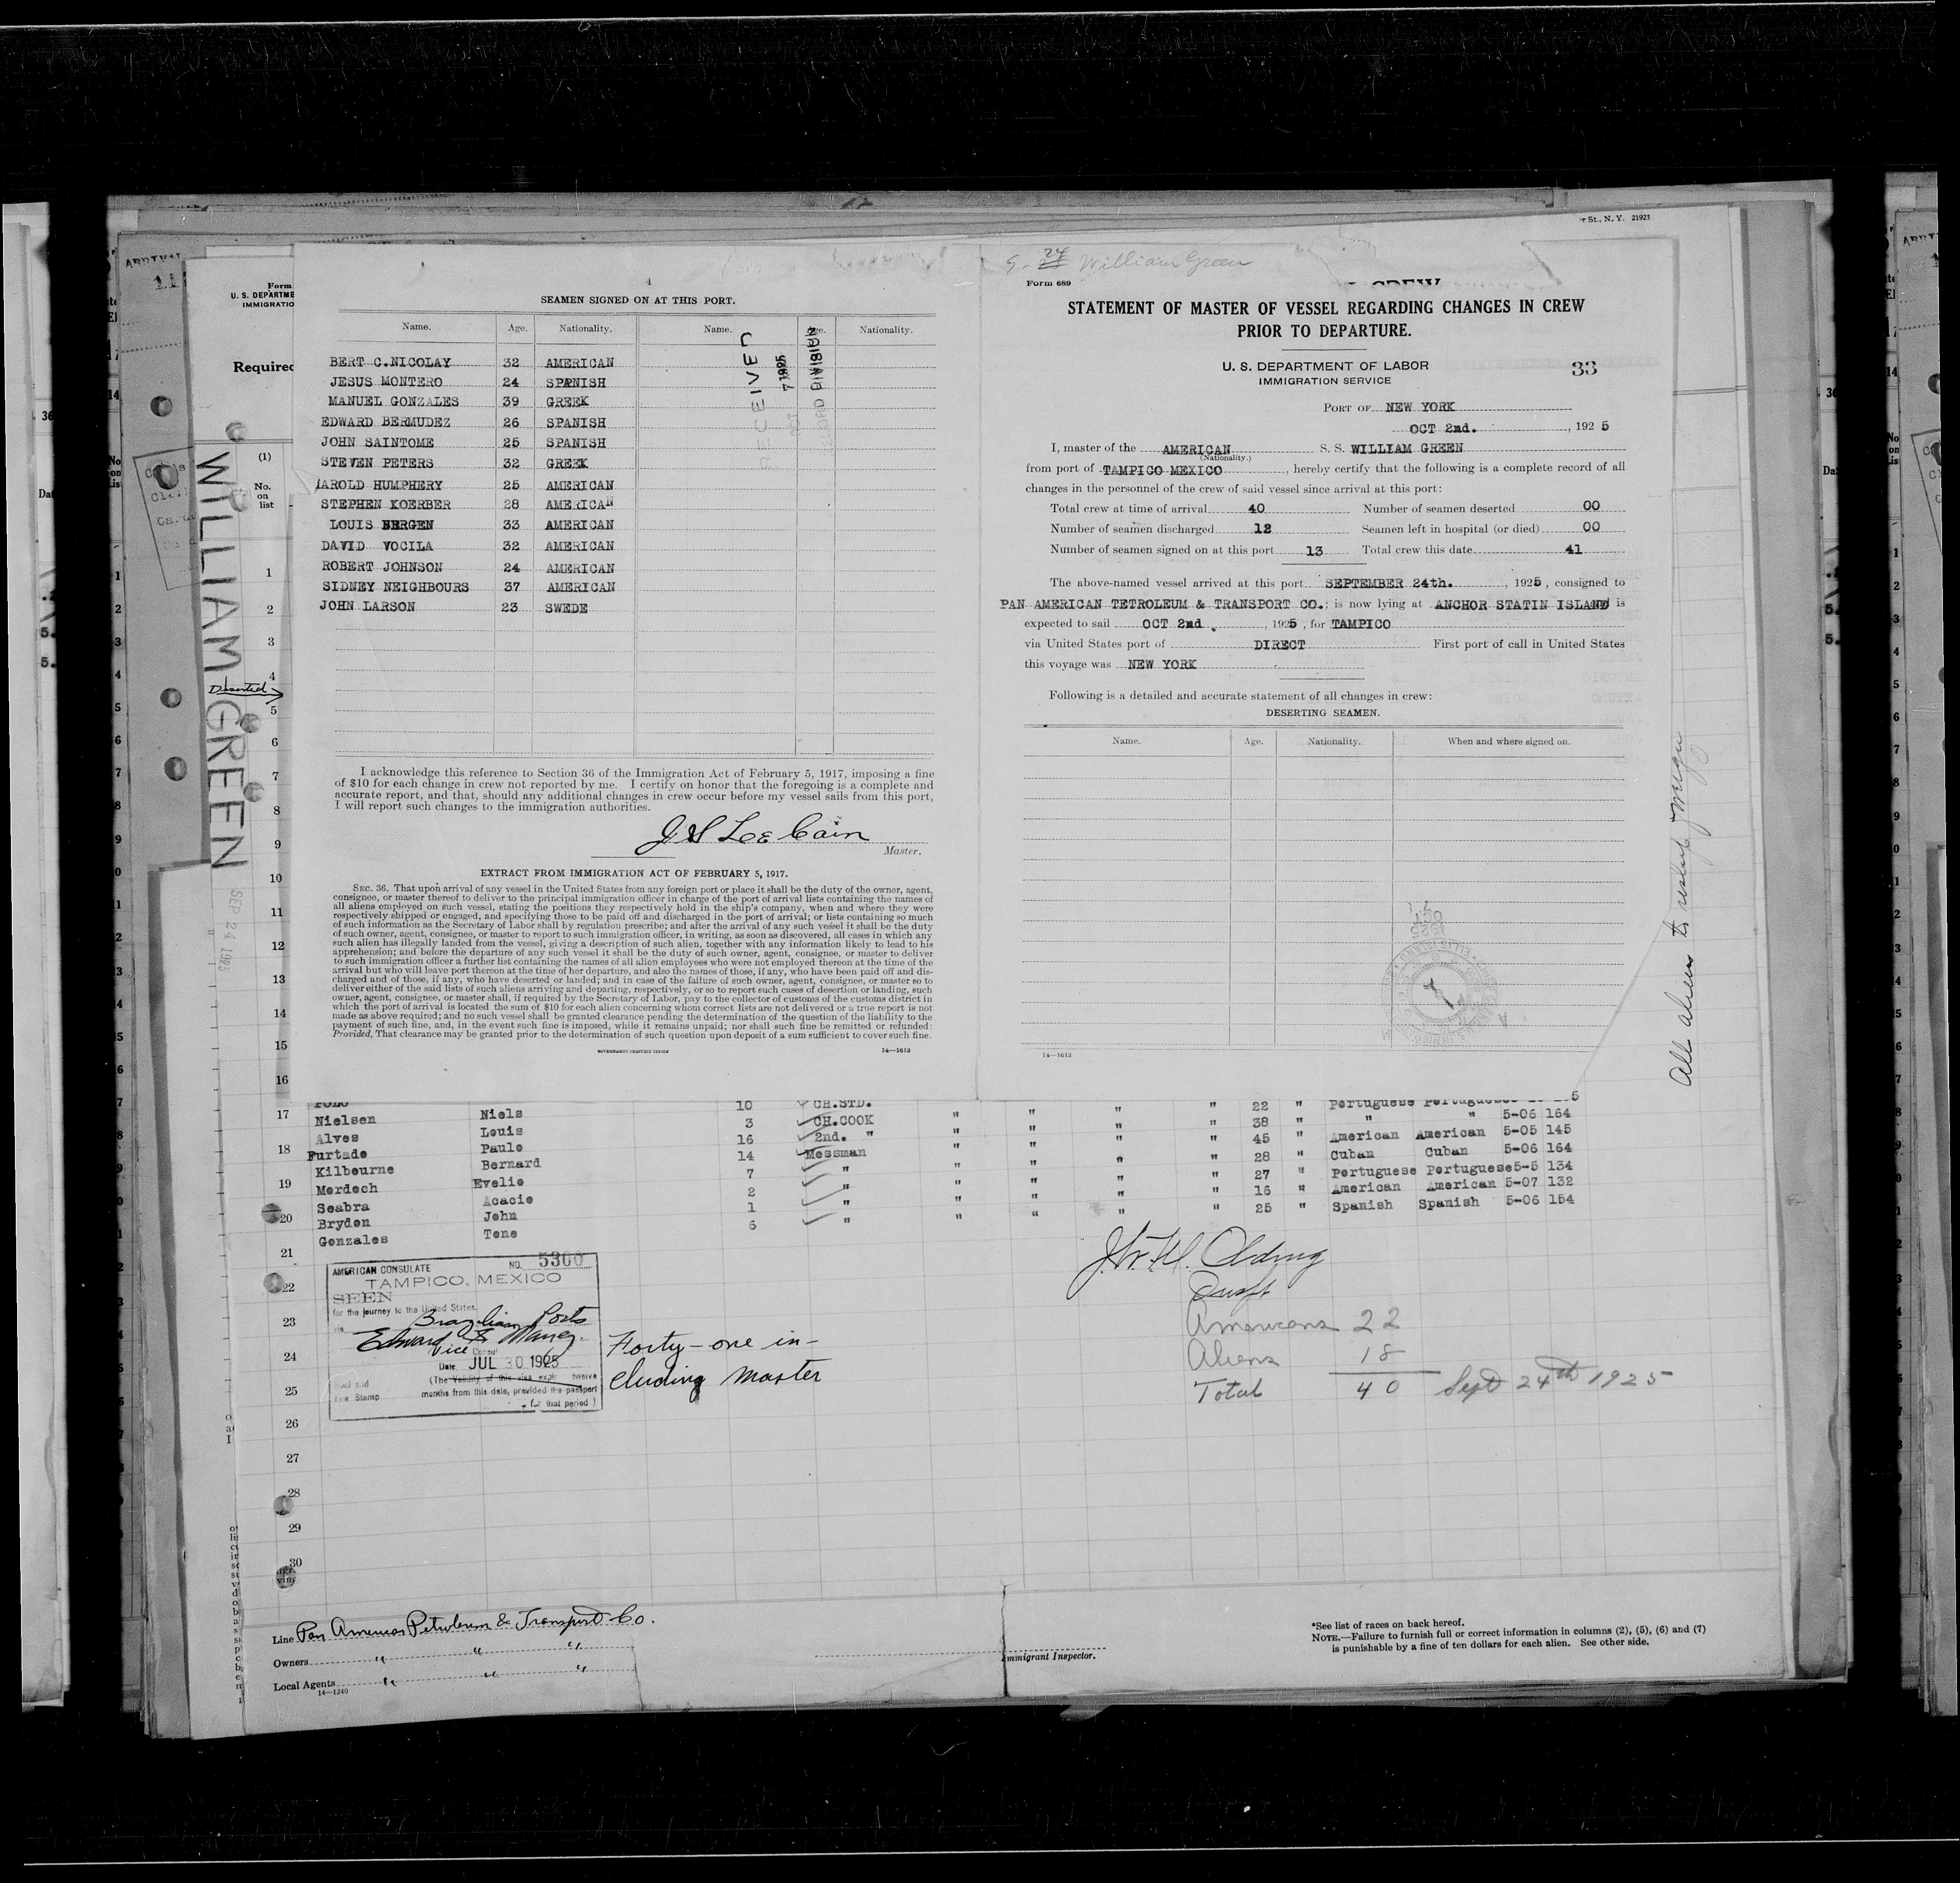 St., N. Y. 21923
4
SEAMEN SIGNED ON AT THIS PORT.
Name. Age. Nationality. Name. Age. Nationality.
BERT C.NICOLAY 32 AMERICAN
JESUS MONTERO 24 SPANISH
MANUEL GONZALES 39 GREEK
EDWARD BERMUDEZ 26 SPANISH
JOHN SAINTOME 25 SPANISH
STEVEN PETERS 32 GREEK
HAROLD HUMPHERY 25 AMERICAN
STEPHEN KOERBER 28 AMERICAN
LOUIS BERGEN 33 AMERICAN
DAVID VOCILA 32 AMERICAN
ROBERT JOHNSON 24 AMERICAN
SIDNEY NEIGHBOURS 37 AMERICAN
JOHN LARSON 23 SWEDE
RECEIVED
I acknowledge this reference to Section 36 of the Immigration Act of February 5, 1917, imposing a fine
of $10 for each change in crew not reported by me. I certify on honor that the foregoing is a complete and
accurate report, and that, should any additional changes in crew occur before my vessel sails from this port,
I will report such changes to the immigration authorities.
J S Lee Cain
Master.
EXTRACT FROM IMMIGRATION ACT OF FEBRUARY 5, 1917.
SEC. 36. That upon arrival of any vessel in the United States from any foreign port or place it shall be the duty of the owner, agent,
consignee, or master thereof to deliver to the principal immigration officer in charge of the port of arrival lists containing the names of
all aliens employed on such vessel, stating the positions they respectively hold in the ship's company, when and where they were
respectively shipped or engaged, and specifying those to be paid off and discharged in the port of arrival; or lists containing so much
of such information as the Secretary of Labor shall by regulation prescribe; and after the arrival of any such vessel it shall be the duty
of such owner, agent, consignee, or master to report to such immigration officer, in writing, as soon as discovered, all cases in which any
such alien has illegally landed from the vessel, giving a description of such alien, together with any information likely to lead to his
apprehension; and before the departure of any such vessel it shall be the duty of such owner, agent, consignee, or master to deliver
to such immigration officer a further list containing the names of all alien employees who were not employed thereon at the time of the
arrival but who will leave port thereon at the time of her departure, and also the names of those, if any, who have been paid off and dis-
charged and of those, if any, who have deserted or landed; and in case of the failure of such owner, agent, consignee, or master so to
deliver either of the said lists of such aliens arriving and departing, respectively, or so to report such cases of desertion or landing, such
owner, agent, consignee, or master shall, if required by the Secretary of Labor, pay to the collector of customs of the customs district in
which the port of arrival is located the sum of $10 for each alien concerning whom correct lists are not delivered or a true report is not
made as above required; and no such vessel shall be granted clearance pending the determination of the question of the liability to the
payment of such fine, and, in the event such fine is imposed, while it remains unpaid; nor shall such fine be remitted or refunded:
Provided, That clearance may be granted prior to the determination of such question upon deposit of a sum sufficient to cover such fine.
GOVERNMENT PRINTING OFFICE 14—1613
24 William Green
Form 689
STATEMENT OF MASTER OF VESSEL REGARDING CHANGES IN CREW
PRIOR TO DEPARTURE.
U. S. DEPARTMENT OF LABOR
IMMIGRATION SERVICE
33
PORT OF NEW YORK
OCT 2nd. , 1925
I, master of the AMERICAN S. S. WILLIAM GREEN
(Nationality.)
from port of TAMPICO MEXICO , hereby certify that the following is a complete record of all
changes in the personnel of the crew of said vessel since arrival at this port:
Total crew at time of arrival 40 Number of seamen deserted 00
Number of seamen discharged 12 Seamen left in hospital (or died) 00
Number of seamen signed on at this port 13 Total crew this date 41
The above-named vessel arrived at this port SEPTEMBER 24th. , 1925, consigned to
PAN AMERICAN TETROLEUM & TRANSPORT CO.; is now lying at ANCHOR STATIN ISLAND is
expected to sail OCT 2nd. , 1925, for TAMPICO
via United States port of DIRECT First port of call in United States
this voyage was NEW YORK
Following is a detailed and accurate statement of all changes in crew:
DESERTING SEAMEN.
Name. Age. Nationality. When and where signed on.
14—1613
All aliens to reship foreign
Form
U. S. DEPARTME
IMMIGRATIO
Required
(1)
No. on list
WILLIAM GREEN
Deserted
SEP 24 1925
1
2
3
4
5
6
7
8
9
10
11
12
13
14
15
16
17
18
19
20
21
22
23
24
25
26
27
28
29
30
10 CH.STD. " " " 22 " Portuguese
Nielsen Niels 3 CH.COOK " " " 38 " " " 5-06 164
Alves Louis 16 2nd. " " " " 45 " American American 5-05 145
Furtado Paulo 14 Messman " " " 28 " Cuban Cuban 5-06 164
Kilbourne Bernard 7 " " " " 27 " Portuguese Portuguese 5-5 134
Merdoch Evelio 2 " " " " 16 " American American 5-07 132
Seabra Acacio 1 " " " " 25 " Spanish Spanish 5-06 154
Brydon John 6 " " " "
Gonzales Tone
AMERICAN CONSULATE NO. 5300
TAMPICO, MEXICO
SEEN
for the journey to the United States,
via Brazilian Ports
Vice Consul
Date, JUL 30 1925
(The Validity of this visa expir twelve
months from this date, provided the passport
for that period)
Fee Stamp
Forty-one in-
cluding master
Americans 22
Aliens 18
Total 40 Sept 24th 1925
Line Pan American Petroleum & Transport Co.
Owners " " "
Local Agents " " "
14—1240
Immigrant Inspector.
*See list of races on back hereof.
NOTE.—Failure to furnish full or correct information in columns (2), (5), (6) and (7)
is punishable by a fine of ten dollars for each alien. See other side.